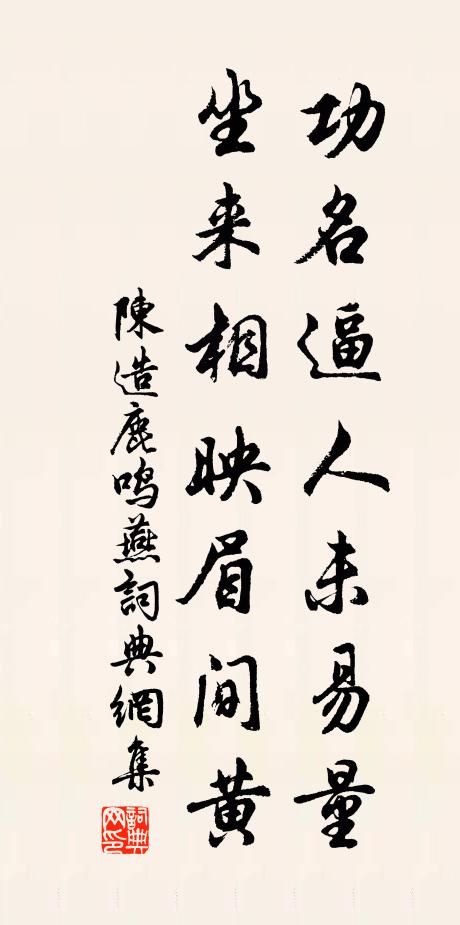 功名逼人未易量
坐来相映眉间黄
陳造鹿鸣燕詞典網集
詞典网印